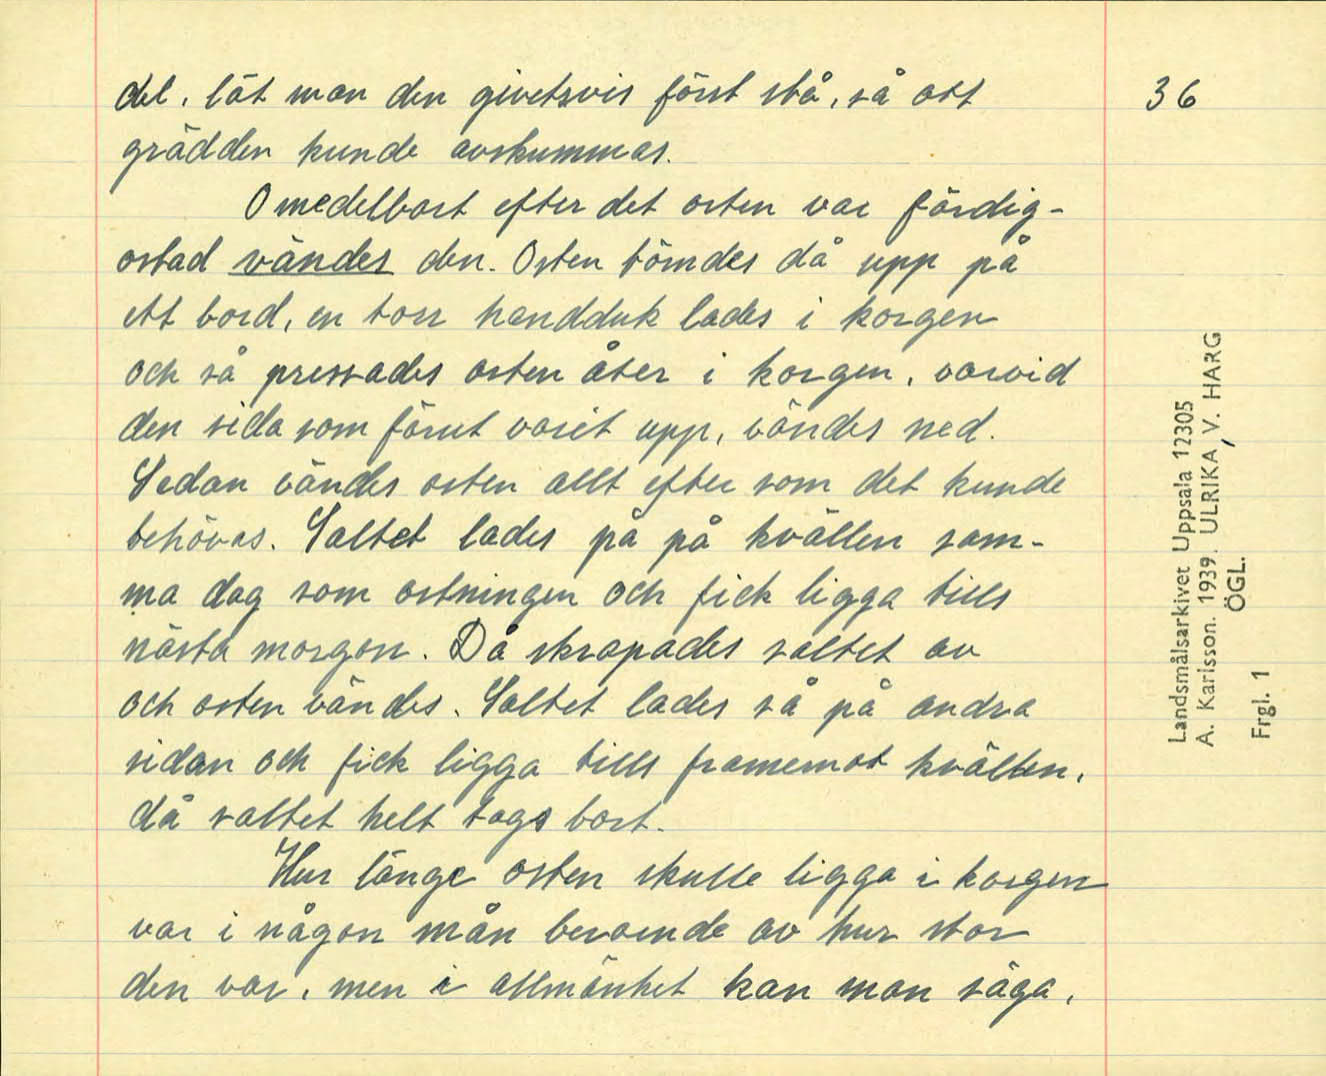 del, lät man den givetsvis först stå, så att
grädden kunde avskummas.
Omedelbart efter det osten var färdig-
ostad vändes den. Osten tömdes då upp på
ett bord, en torr handduk lades i korgen
och så pressades osten åter i korgen, varvid
den sida som förut varit upp, vändes ned.
Sedan vändes osten allt efter som det kunde
behövas. Saltet lades på på kvällen sam-
ma dag som ostningen och fick ligga tills
nästa morgon. Då skrapades saltet av
och osten vändes. Saltet lades så på andra
sidan och fick ligga tills framemot kvällen,
då saltet helt togs bort.
Hur länge osten skulle ligga i korgen
var i någon mån beroende av hur stor
den var, men i allmänhet kan man säga,
36
Landsmålsarkivet Uppsala 12305
A. Karlsson. 1939. ULRIKA, V. HARG
ÖGL.
Frgl. 1